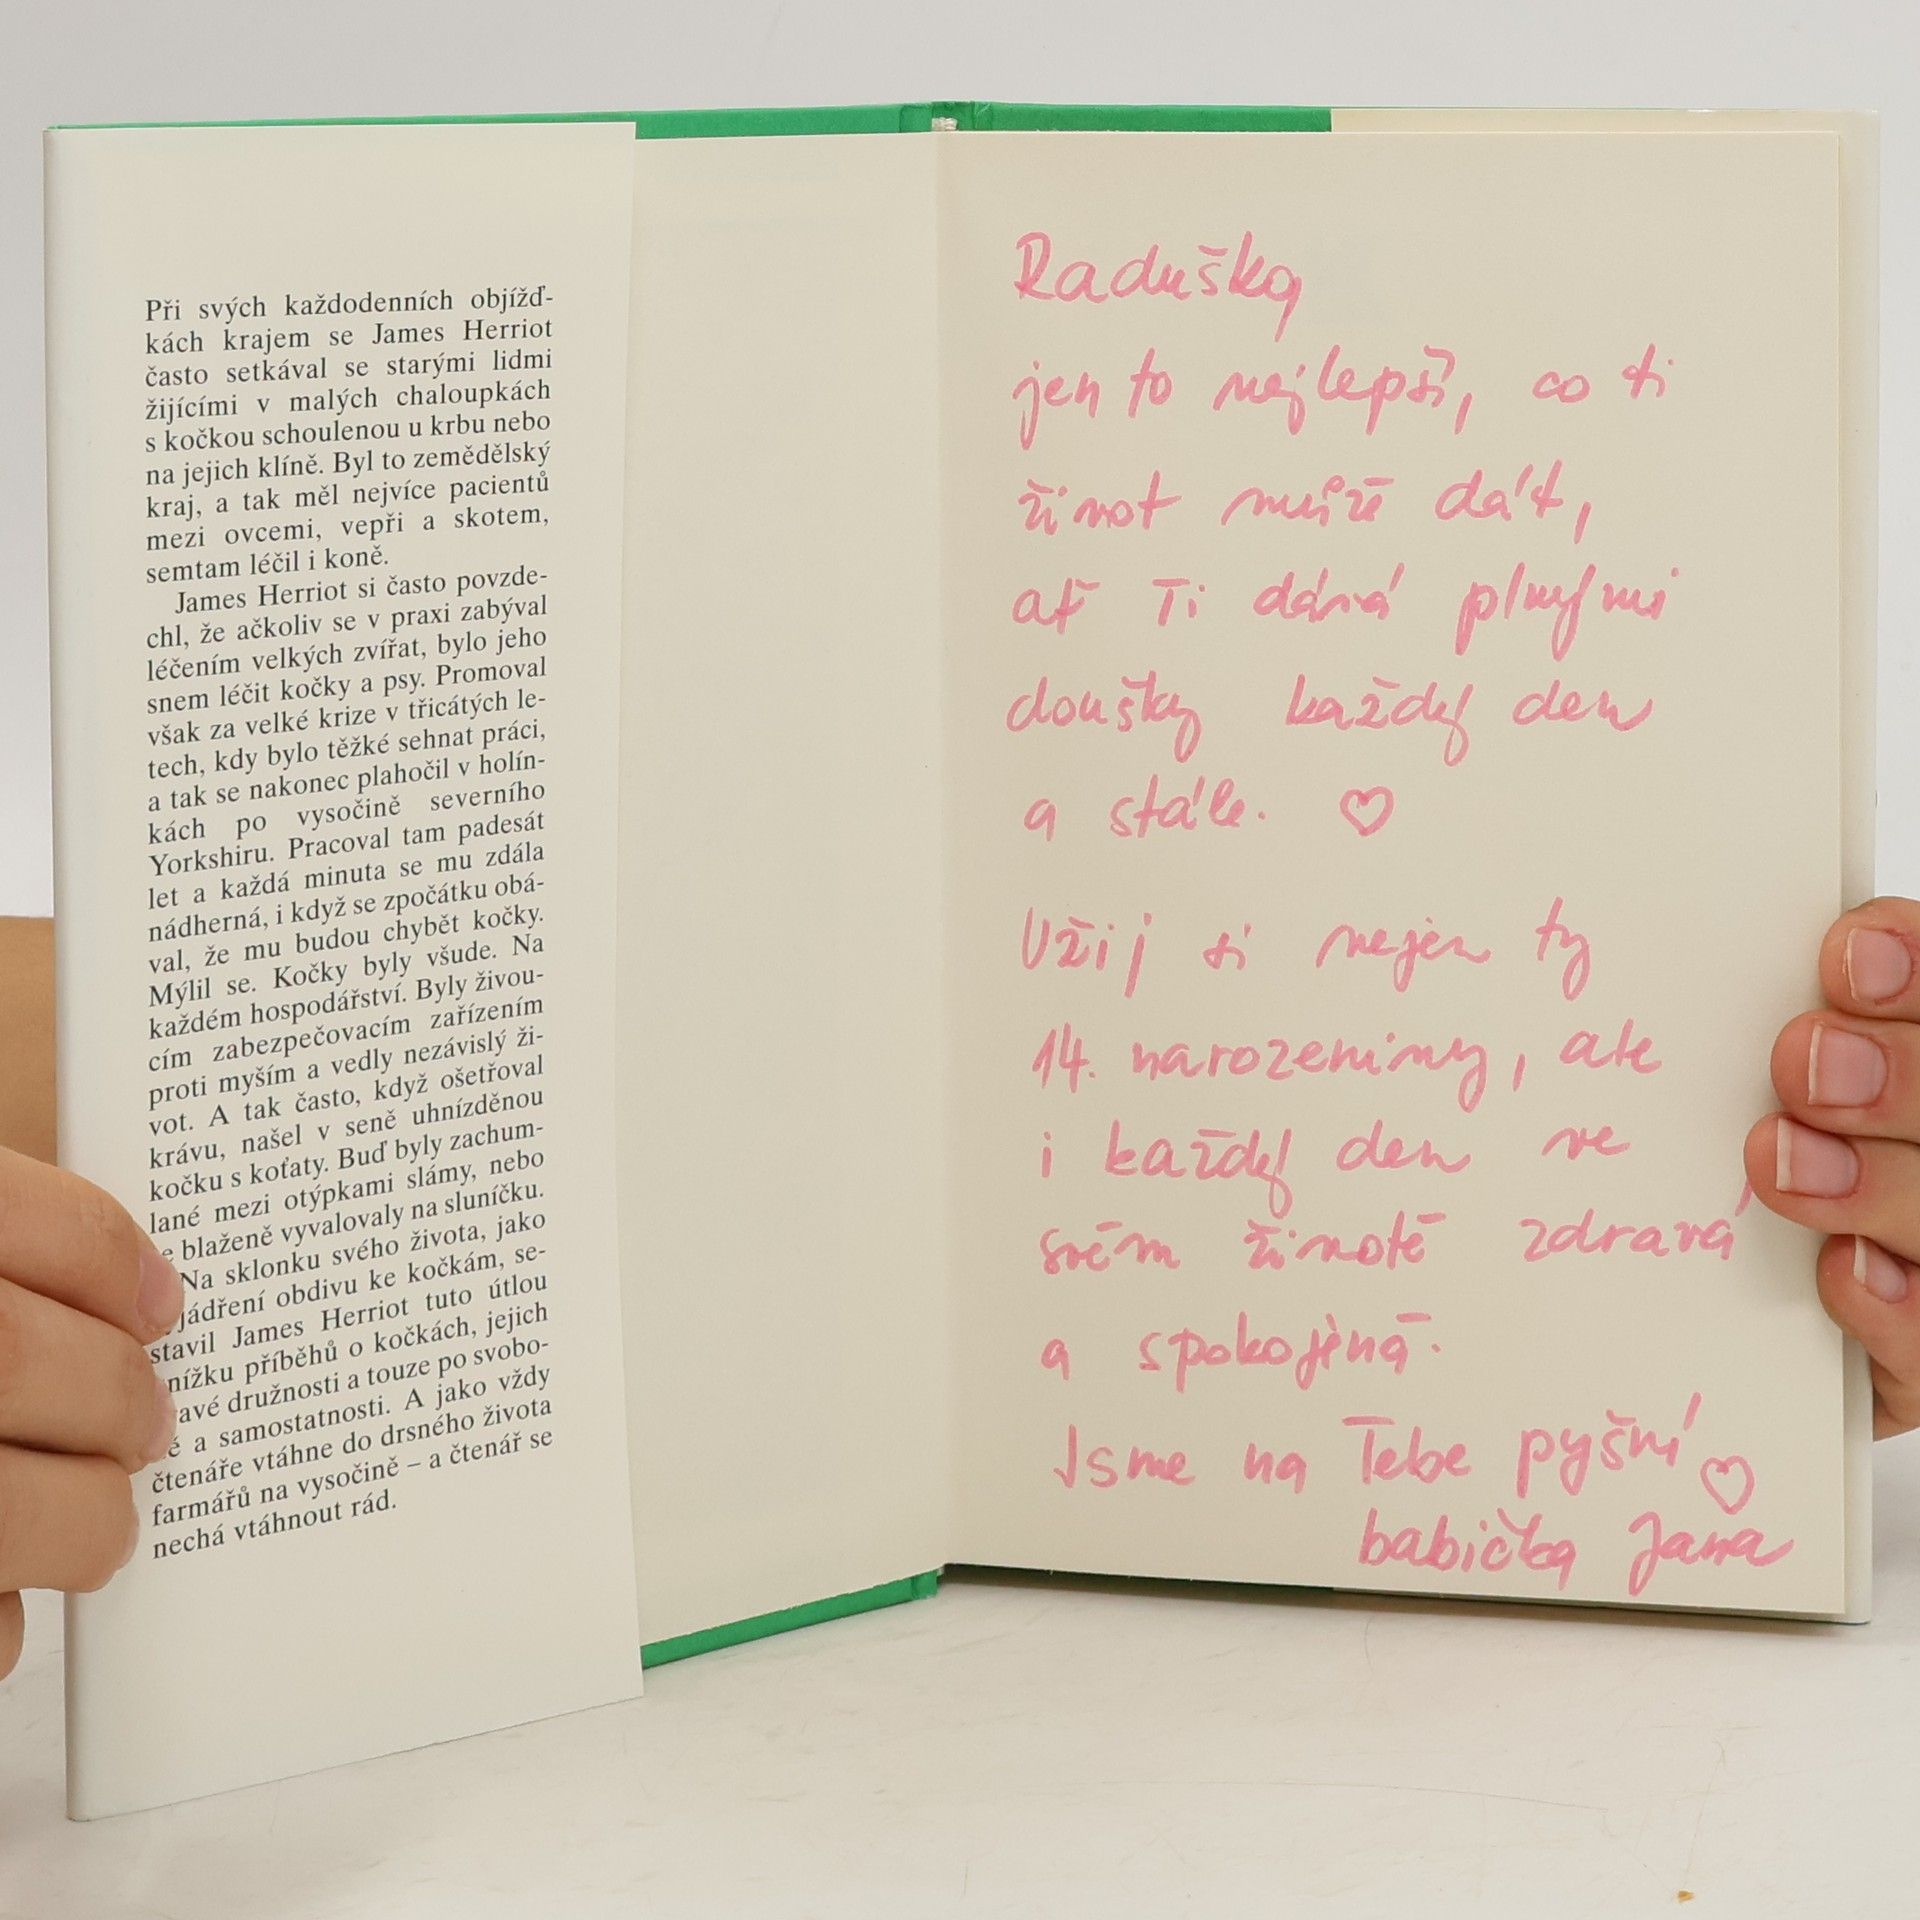 Při svých každodenních objížď-
kách krajem se James Herriot
často setkával se starými lidmi
žijícími v malých chaloupkách
s kočkou schoulenou u krbu nebo
na jejich klíně. Byl to zemědělský
kraj, a tak měl nejvíce pacientů
mezi ovcemi, vepři a skotem,
semtam léčil i koně.
James Herriot si často povzde-
chl, že ačkoliv se v praxi zabýval
léčením velkých zvířat, bylo jeho
snem léčit kočky a psy. Promoval
však za velké krize v třicátých le-
tech, kdy bylo těžké sehnat práci,
a tak se nakonec plahočil v holín-
kách po vysočině severního
Yorkshiru. Pracoval tam padesát
let a každá minuta se mu zdála
nádherná, i když se zpočátku obá-
val, že mu budou chybět kočky.
Mýlil se. Kočky byly všude. Na
každém hospodářství. Byly živou-
cím zabezpečovacím zařízením
proti myším a vedly nezávislý ži-
vot. A tak často, když ošetřoval
krávu, našel v seně uhnízděnou
kočku s koťaty. Buď byly zachum-
lané mezi otýpkami slámy, nebo
e blaženě vyvalovaly na sluníčku.
Na sklonku svého života, jako
jádření obdivu ke kočkám, se-
stavil James Herriot tuto útlou
nížku příběhů o kočkách, jejich
avé družnosti a touze po svobo-
é a samostatnosti. A jako vždy
čtenáře vtáhne do drsného života
farmářů na vysočině – a čtenář se
nechá vtáhnout rád.
Raduška
jen to nejlepší, co ti
život může dát,
ať Ti dává plnými
doušky každý den
a stále. ♡
Užij si nejen ty
14. narozeniny, ale
i každý den ve
svém životě zdravá
a spokojená.
Jsme na Tebe pyšní ♡
babička Jana